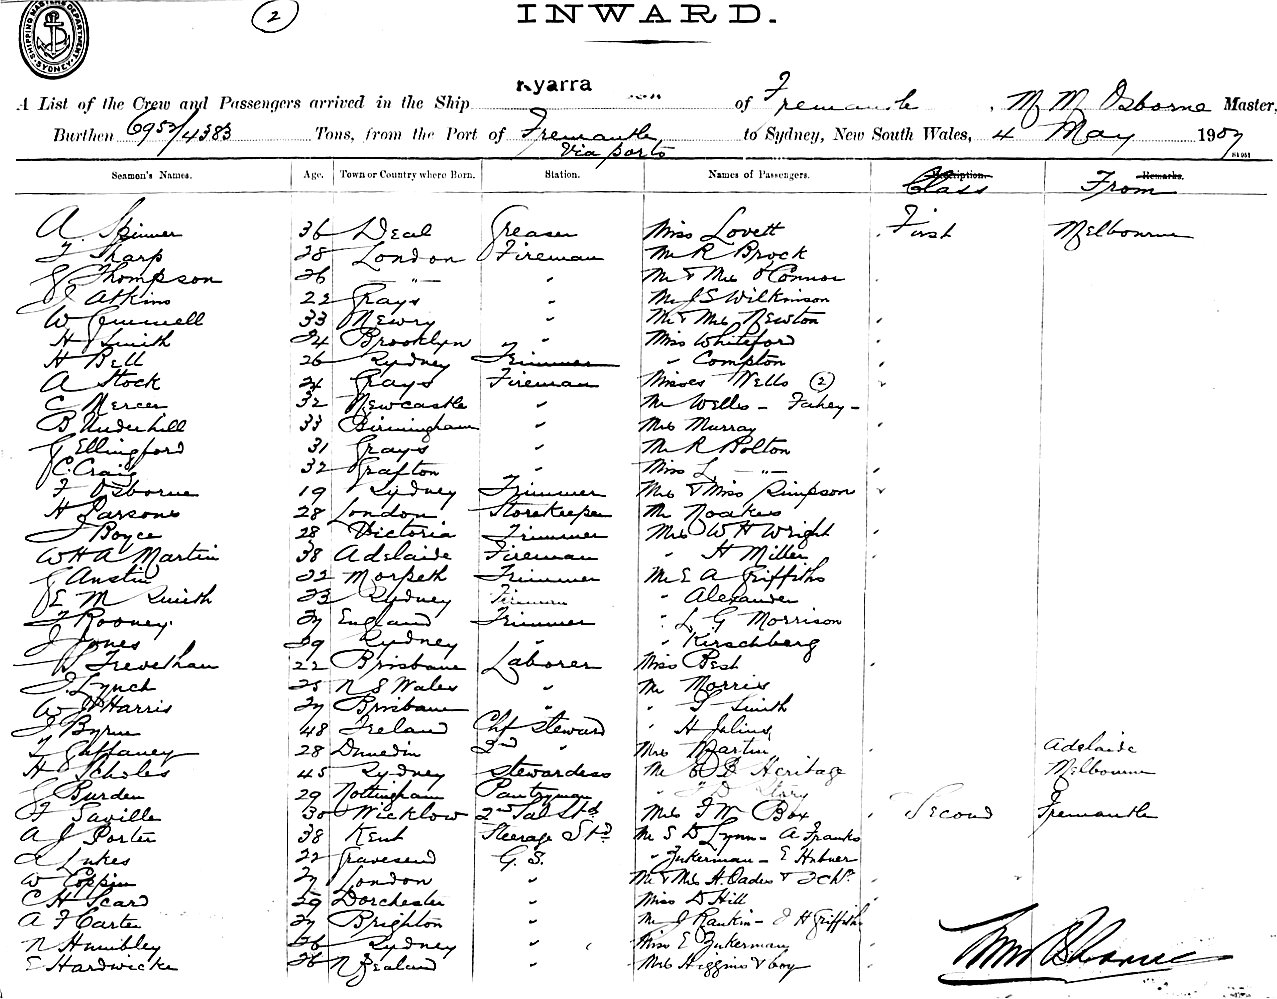 2
SHIPPING MASTERS DEPARTMENT SYDNEY
INWARD.
A List of the Crew and Passengers arrived in the Ship Kyarra of Fremantle, M M Osborne Master,
Burthen 6953/4383 Tons, from the Port of Fremantle Via ports to Sydney, New South Wales, 4 May 1907
Seamen's Names. Age. Town or Country where Born. Station. Names of Passengers. Description. Class Remarks. From
A Skinner 36 Deal Greaser Miss Lovett First Melbourne
F Sharp 28 London Fireman Mr R Brock
J Thompson 26 — " — " Mr & Mrs O'Connor
J Atkins 22 Grays " Mr J S Wilkinson
W Gemmell 33 Newry " Mr & Mrs Newton
H Smith 24 Brooklyn " Miss Whiteford
H Bell 26 Sydney Trimmer " Compton
A Stock 24 Grays Fireman Misses Wells (2)
C Mercer 32 Newcastle " Mr Wells - Fahey -
B Underhill 33 Birmingham " Mrs Murray
J Ellingford 31 Grays " Mr R Bolton
C Craig 32 Grafton " Miss L — " —
F Osborne 19 Sydney Trimmer Mrs & Miss Simpson
H Parsons 28 London Storekeeper Mr Noakes
J Boyce 28 Victoria Trimmer Mrs W H Wright
W H A Martin 38 Adelaide Fireman " H Miller
J Austin 22 Morpeth Trimmer Mr E A Griffiths
E M Smith 23 Sydney Fireman " Alexander
J Rooney 27 England Trimmer " L G Morrison
J Jones 39 Sydney " " Kirschberg
W Trevethan 22 Brisbane Laborer Miss Best
J. Lynch 25 N S Wales " Mr Morris
W J Harris 27 Brisbane " " T Smith
J Byrne 48 Ireland Chf Steward " H Julius
Gaffaney 28 Dunedin 2nd " Mrs Martin Adelaide
H Scholes 45 Sydney Stewardess Mr Heritage Melbourne
J Burden 29 Nottingham Pantryman " Story
F Saville 30 Wicklow 2nd Sal Std Mrs F W Box Second Fremantle
A J Porter 38 Kent Steerage Std Mr S D Lynn - A Franks
Lukes 22 Gravesend G. S. " Zukerman - E Hubner
W Coppin 27 London " Mr & Mrs H. Oades & 2 Chn
C H Scard 29 Dorchester " Miss D Hill
A F Carter 27 Brighton " Mr J Rankin - J H Griffiths
N Humbley 26 Sydney " Miss E Zukerman
E Hardwicke 26 N Zealand " Mrs Higgins & boy
M M Osborne